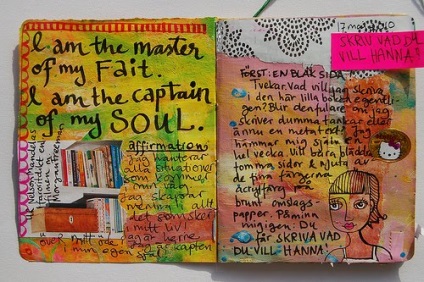 I am the master
of my Fait.
I am the captain
of my SOUL.
affirmation:
Jag hanterar
alla situationer
i min väg.
Jag skapar
mening i allt
det som sker
i mitt liv!
Jag är herre
över mitt öde
jag är kapten
i min egen själ!
17 maj 2010
SKRIV VAD DU
VILL HANNA!
FÖRST: EN BLÄK SIDA
Tvekar. Vad vill jag skriva
i den här lilla boken egentli-
gen? Blir den fulare om jag
skriver dumma tankar eller
ännu en metatext? Jag
hämmar mig själv en
hel vecka. Vill bara bläddra
tomma sidor & njuta av
de fina färgerna
Acrylfärg på
brunt omslags-
papper. Påminn
mig igen: Du
får SKRIVA VAD
DU VILL HANNA!